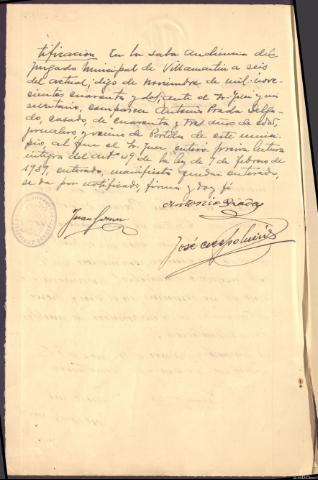 tificación En la sala Audiencia del
Juzgado Municipal de Villamartin a seis
del actual, digo de Noviembre de mil nove-
cientos cuarenta y dos, ante el Sr. Juez y mi
secretario, comparece Antonio Prada Delga-
do, casado, de cuarenta y tres años de edad,
jornalero y vecino de Portela de este munici-
pio al que el Sr. Juez enteró previa lectura
integra del art. 49 de la ley de 9 de febrero de
1939, enterado, manifiesta quedar enterado,
se da por notificado, firma y doy fé
Antonio Prada
Juan
José